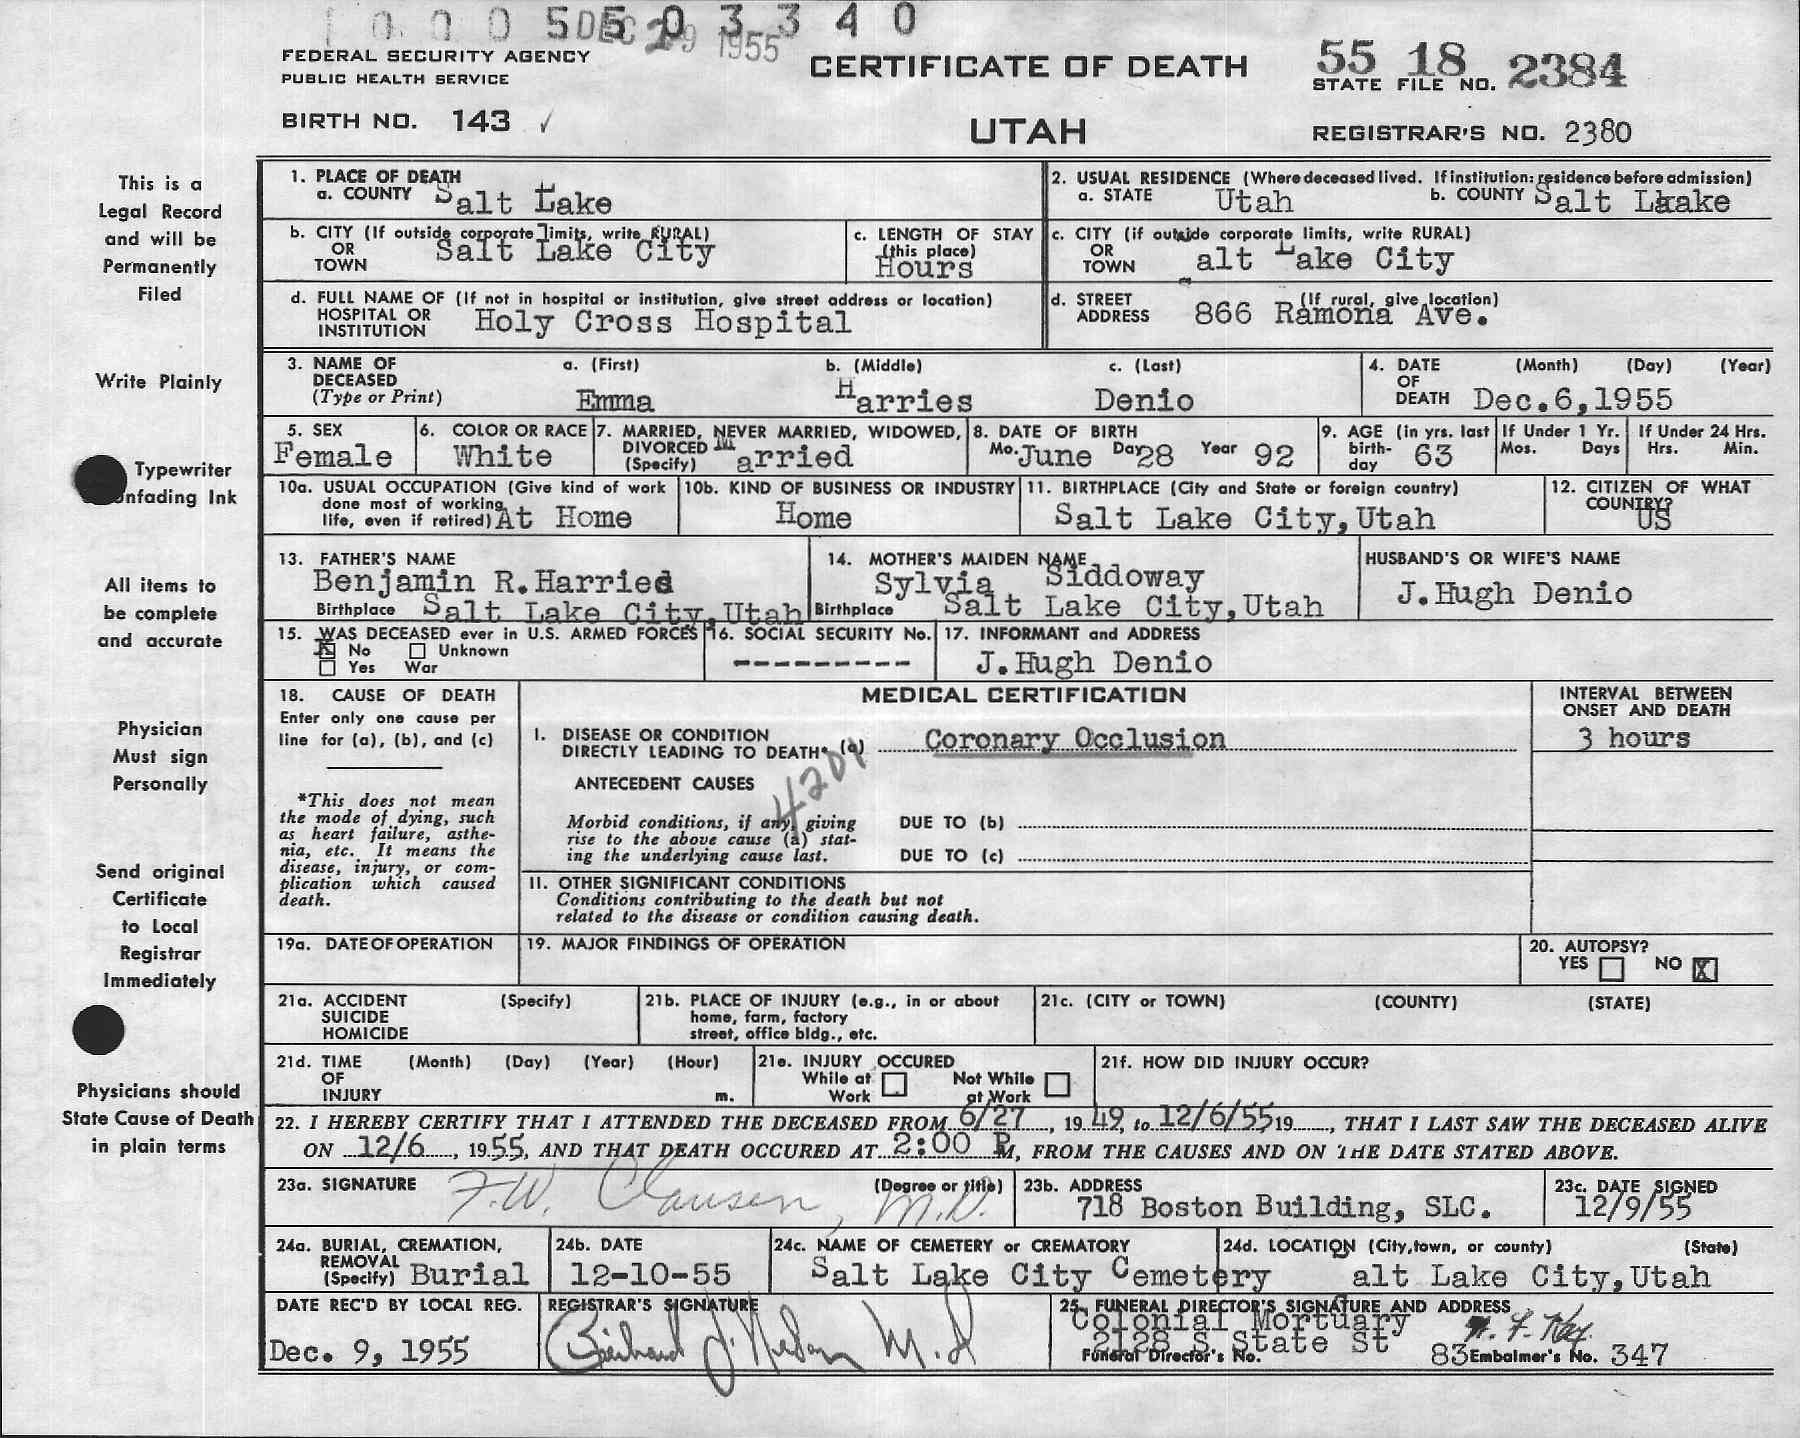 1 0 0 0 5 5 0 3 3 4 0
DEC 29 1955
FEDERAL SECURITY AGENCY
PUBLIC HEALTH SERVICE
CERTIFICATE OF DEATH
55 18 2384
STATE FILE NO.
BIRTH NO. 143 ✓
UTAH
REGISTRAR'S NO. 2380
This is a
Legal Record
and will be
Permanently
Filed
Write Plainly
Typewriter
nfading Ink
All items to
be complete
and accurate
Physician
Must sign
Personally
Send original
Certificate
to Local
Registrar
Immediately
Physicians should
State Cause of Death
in plain terms
1. PLACE OF DEATH
a. COUNTY Salt Lake
2. USUAL RESIDENCE (Where deceased lived. If institution: residence before admission)
a. STATE Utah b. COUNTY Salt Lkake
b. CITY (If outside corporate limits, write RURAL)
OR
TOWN Salt Lake City
c. LENGTH OF STAY
(this place)
Hours
c. CITY (if outside corporate limits, write RURAL)
OR
TOWN alt Lake City
d. FULL NAME OF (If not in hospital or institution, give street address or location)
HOSPITAL OR
INSTITUTION Holy Cross Hospital
d. STREET (If rural, give location)
ADDRESS 866 Ramona Ave.
3. NAME OF
DECEASED
(Type or Print)
a. (First) b. (Middle) c. (Last)
Emma Harries Denio
4. DATE (Month) (Day) (Year)
OF
DEATH Dec.6,1955
5. SEX
Female
6. COLOR OR RACE
White
7. MARRIED, NEVER MARRIED, WIDOWED,
DIVORCED
(Specify) Married
8. DATE OF BIRTH
Mo. June Day 28 Year 92
9. AGE (in yrs. last
birth-
day 63
If Under 1 Yr.
Mos. Days
If Under 24 Hrs.
Hrs. Min.
10a. USUAL OCCUPATION (Give kind of work
done most of working
life, even if retired) At Home
10b. KIND OF BUSINESS OR INDUSTRY
Home
11. BIRTHPLACE (City and State or foreign country)
Salt Lake City, Utah
12. CITIZEN OF WHAT
COUNTRY?
US
13. FATHER'S NAME
Benjamin R.Harries
Birthplace Salt Lake City,Utah
14. MOTHER'S MAIDEN NAME
Sylvia Siddoway
Birthplace Salt Lake City,Utah
HUSBAND'S OR WIFE'S NAME
J.Hugh Denio
15. WAS DECEASED ever in U.S. ARMED FORCES
X No Unknown
Yes War
16. SOCIAL SECURITY No.
---------
17. INFORMANT and ADDRESS
J.Hugh Denio
18. CAUSE OF DEATH
Enter only one cause per
line for (a), (b), and (c)
*This does not mean
the mode of dying, such
as heart failure, asthe-
nia, etc. It means the
disease, injury, or com-
plication which caused
death.
MEDICAL CERTIFICATION
INTERVAL BETWEEN
ONSET AND DEATH
I. DISEASE OR CONDITION
DIRECTLY LEADING TO DEATH* (a) Coronary Occlusion
3 hours
4201
ANTECEDENT CAUSES
Morbid conditions, if any, giving
rise to the above cause (a) stat-
ing the underlying cause last.
DUE TO (b)
DUE TO (c)
11. OTHER SIGNIFICANT CONDITIONS
Conditions contributing to the death but not
related to the disease or condition causing death.
19a. DATE OF OPERATION
19. MAJOR FINDINGS OF OPERATION
20. AUTOPSY?
YES NO X
21a. ACCIDENT (Specify)
SUICIDE
HOMICIDE
21b. PLACE OF INJURY (e.g., in or about
home, farm, factory
street, office bldg., etc.
21c. (CITY or TOWN) (COUNTY) (STATE)
21d. TIME (Month) (Day) (Year) (Hour)
OF
INJURY m.
21e. INJURY OCCURED
While at Work Not While at Work
21f. HOW DID INJURY OCCUR?
22. I HEREBY CERTIFY THAT I ATTENDED THE DECEASED FROM 6/27, 19 49, to 12/6/55 19, THAT I LAST SAW THE DECEASED ALIVE
ON 12/6, 1955, AND THAT DEATH OCCURED AT 2:00 P M, FROM THE CAUSES AND ON THE DATE STATED ABOVE.
23a. SIGNATURE F.W. Clausen, M.D. (Degree or title)
23b. ADDRESS
718 Boston Building, SLC.
23c. DATE SIGNED
12/9/55
24a. BURIAL, CREMATION,
REMOVAL
(Specify) Burial
24b. DATE
12-10-55
24c. NAME OF CEMETERY or CREMATORY
Salt Lake City Cemetery
24d. LOCATION (City, town, or county) (State)
alt Lake City,Utah
DATE REC'D BY LOCAL REG.
Dec. 9, 1955
REGISTRAR'S SIGNATURE
M.D
25. FUNERAL DIRECTOR'S SIGNATURE AND ADDRESS
Colonial Mortuary
2128 S State St
Funeral Director's No. 83 Embalmer's No. 347